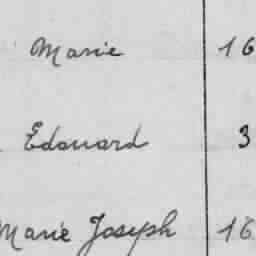 Marie 16
Edouard 3
Marie Joseph 16